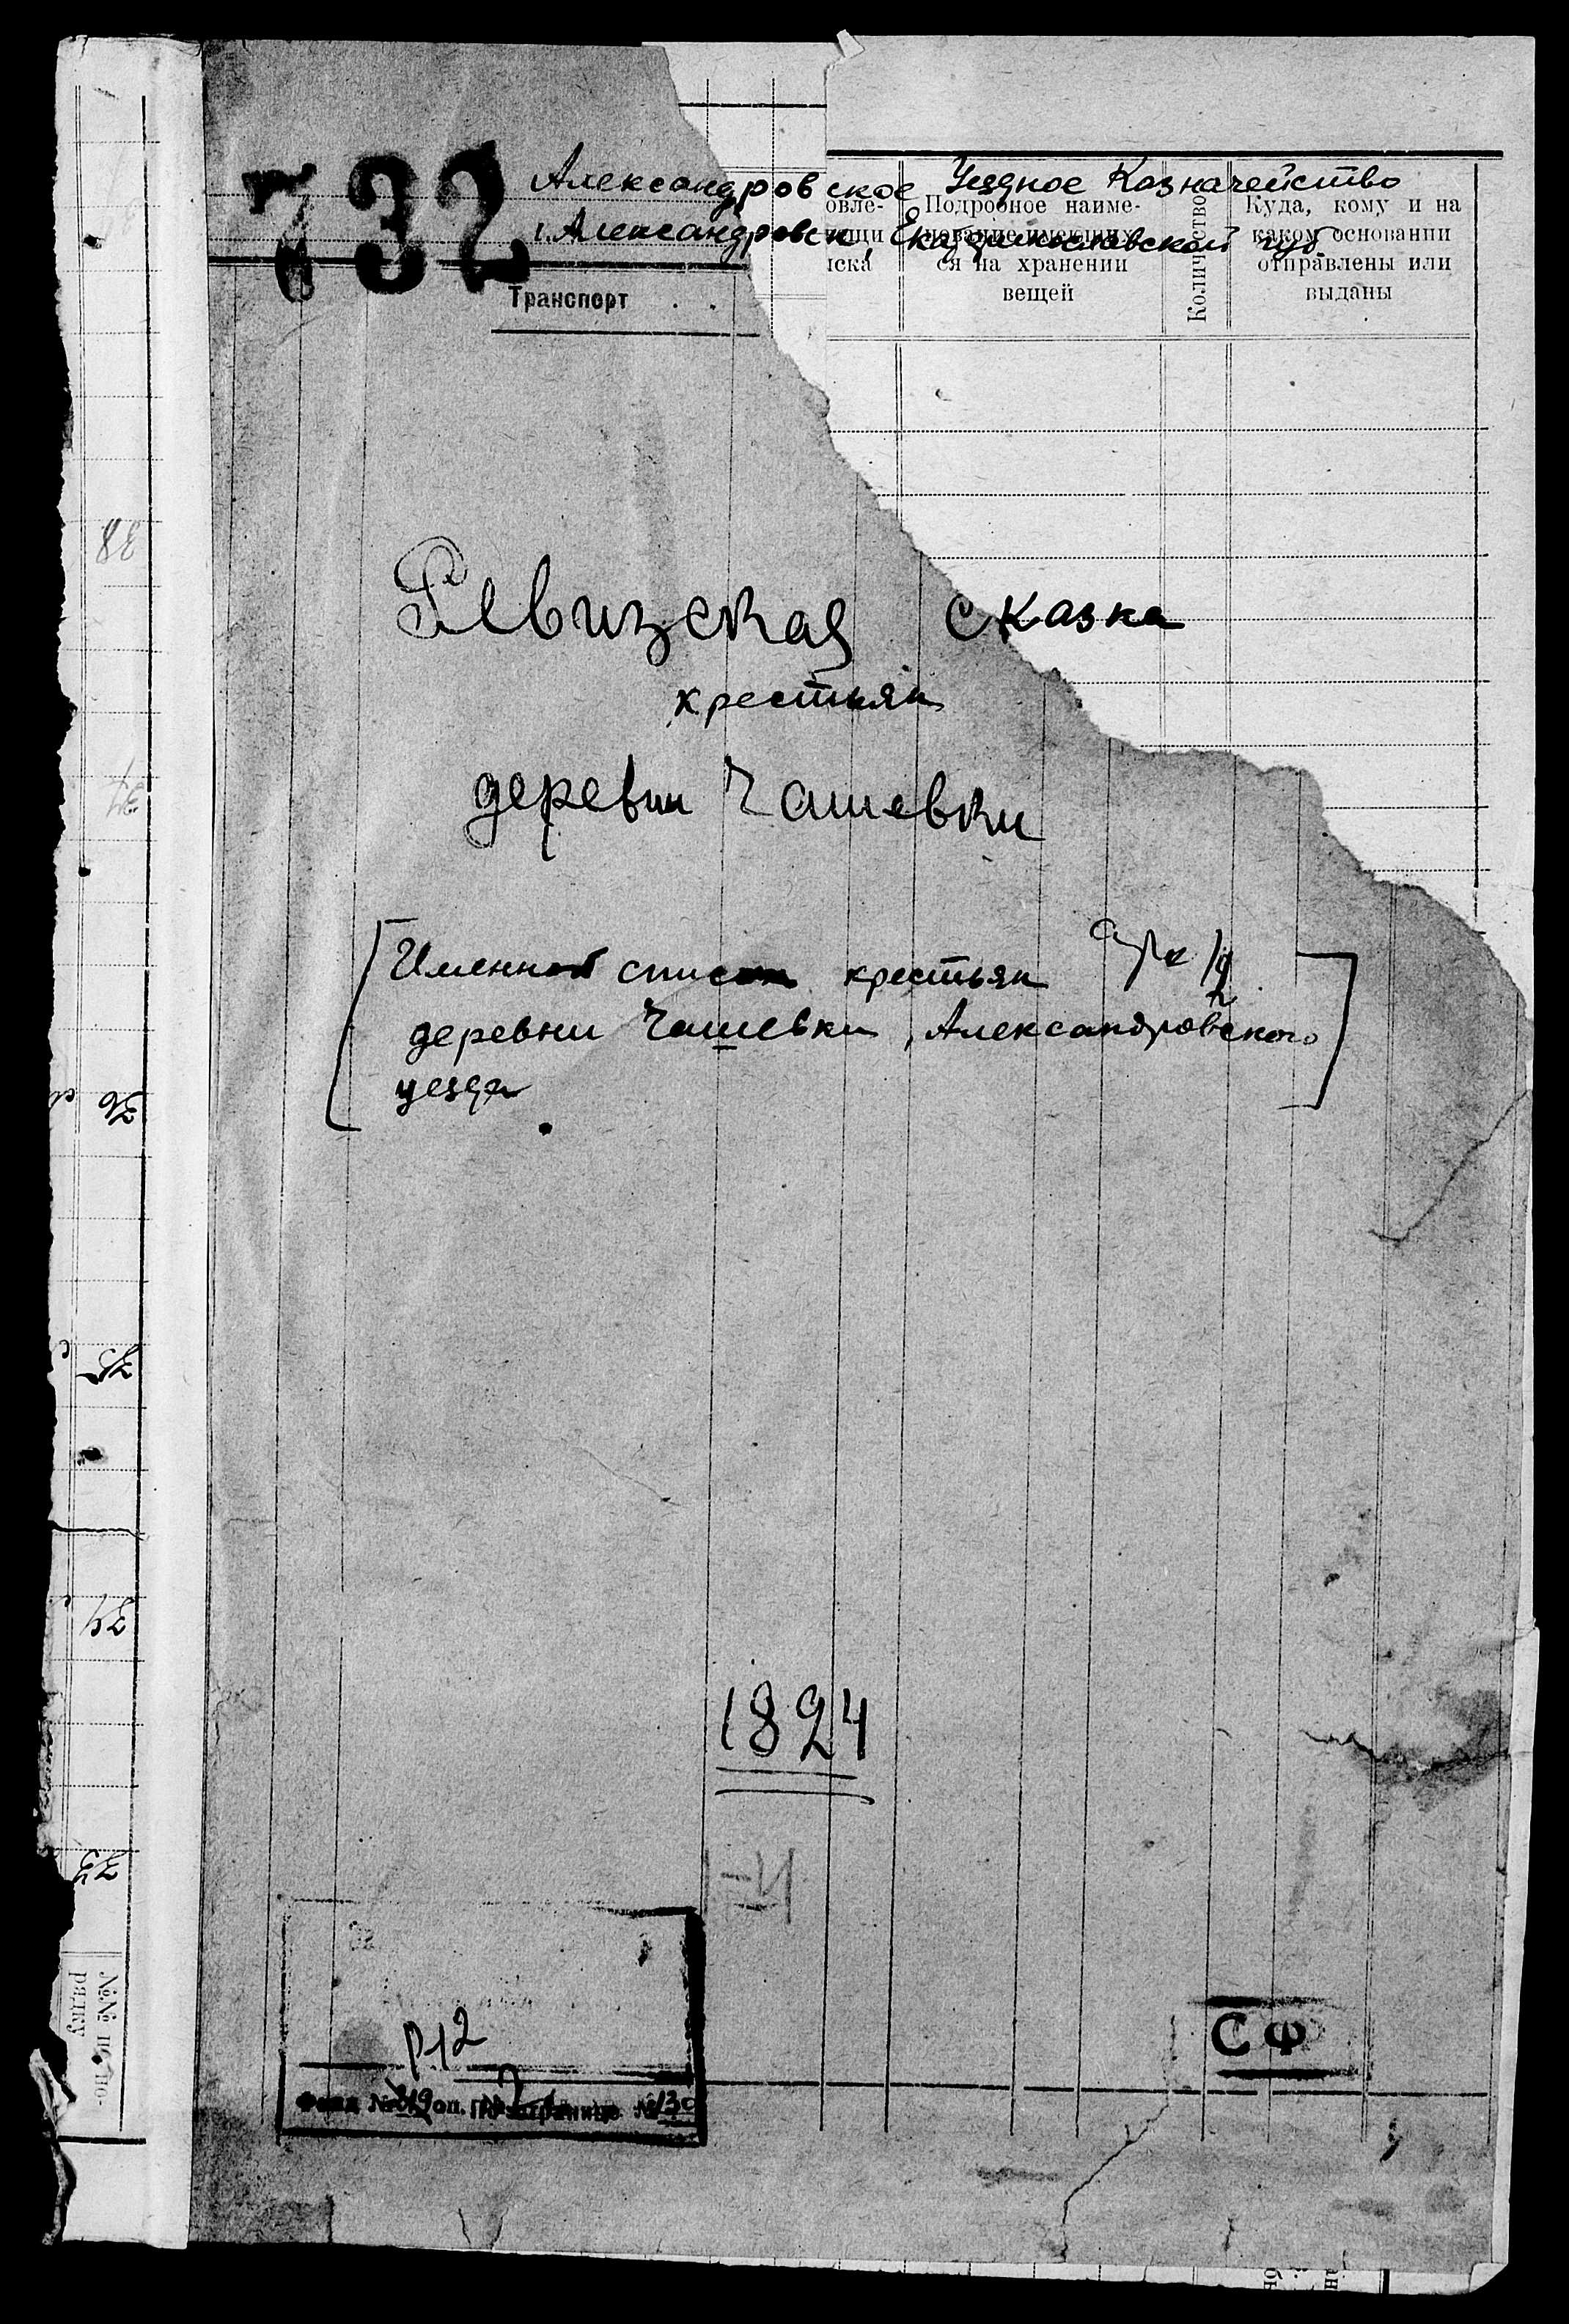 732
Александровское Уездное Казначейство
г. Александровск, Екатеринославской губ.
Подробное наиме-
нование имеющих-
ся на хранении
вещей
Количество
Куда, кому и на
каком основании
отправлены или
выданы
Транспорт
Ревизская сказка
крестьян
деревни Чашевки
Именной список крестьян
деревни Чашевки, Александровского
уезда
1824
Р-12
СФ
Фонд № оп.
38
36
35
34
33
№№ по по-
рядку